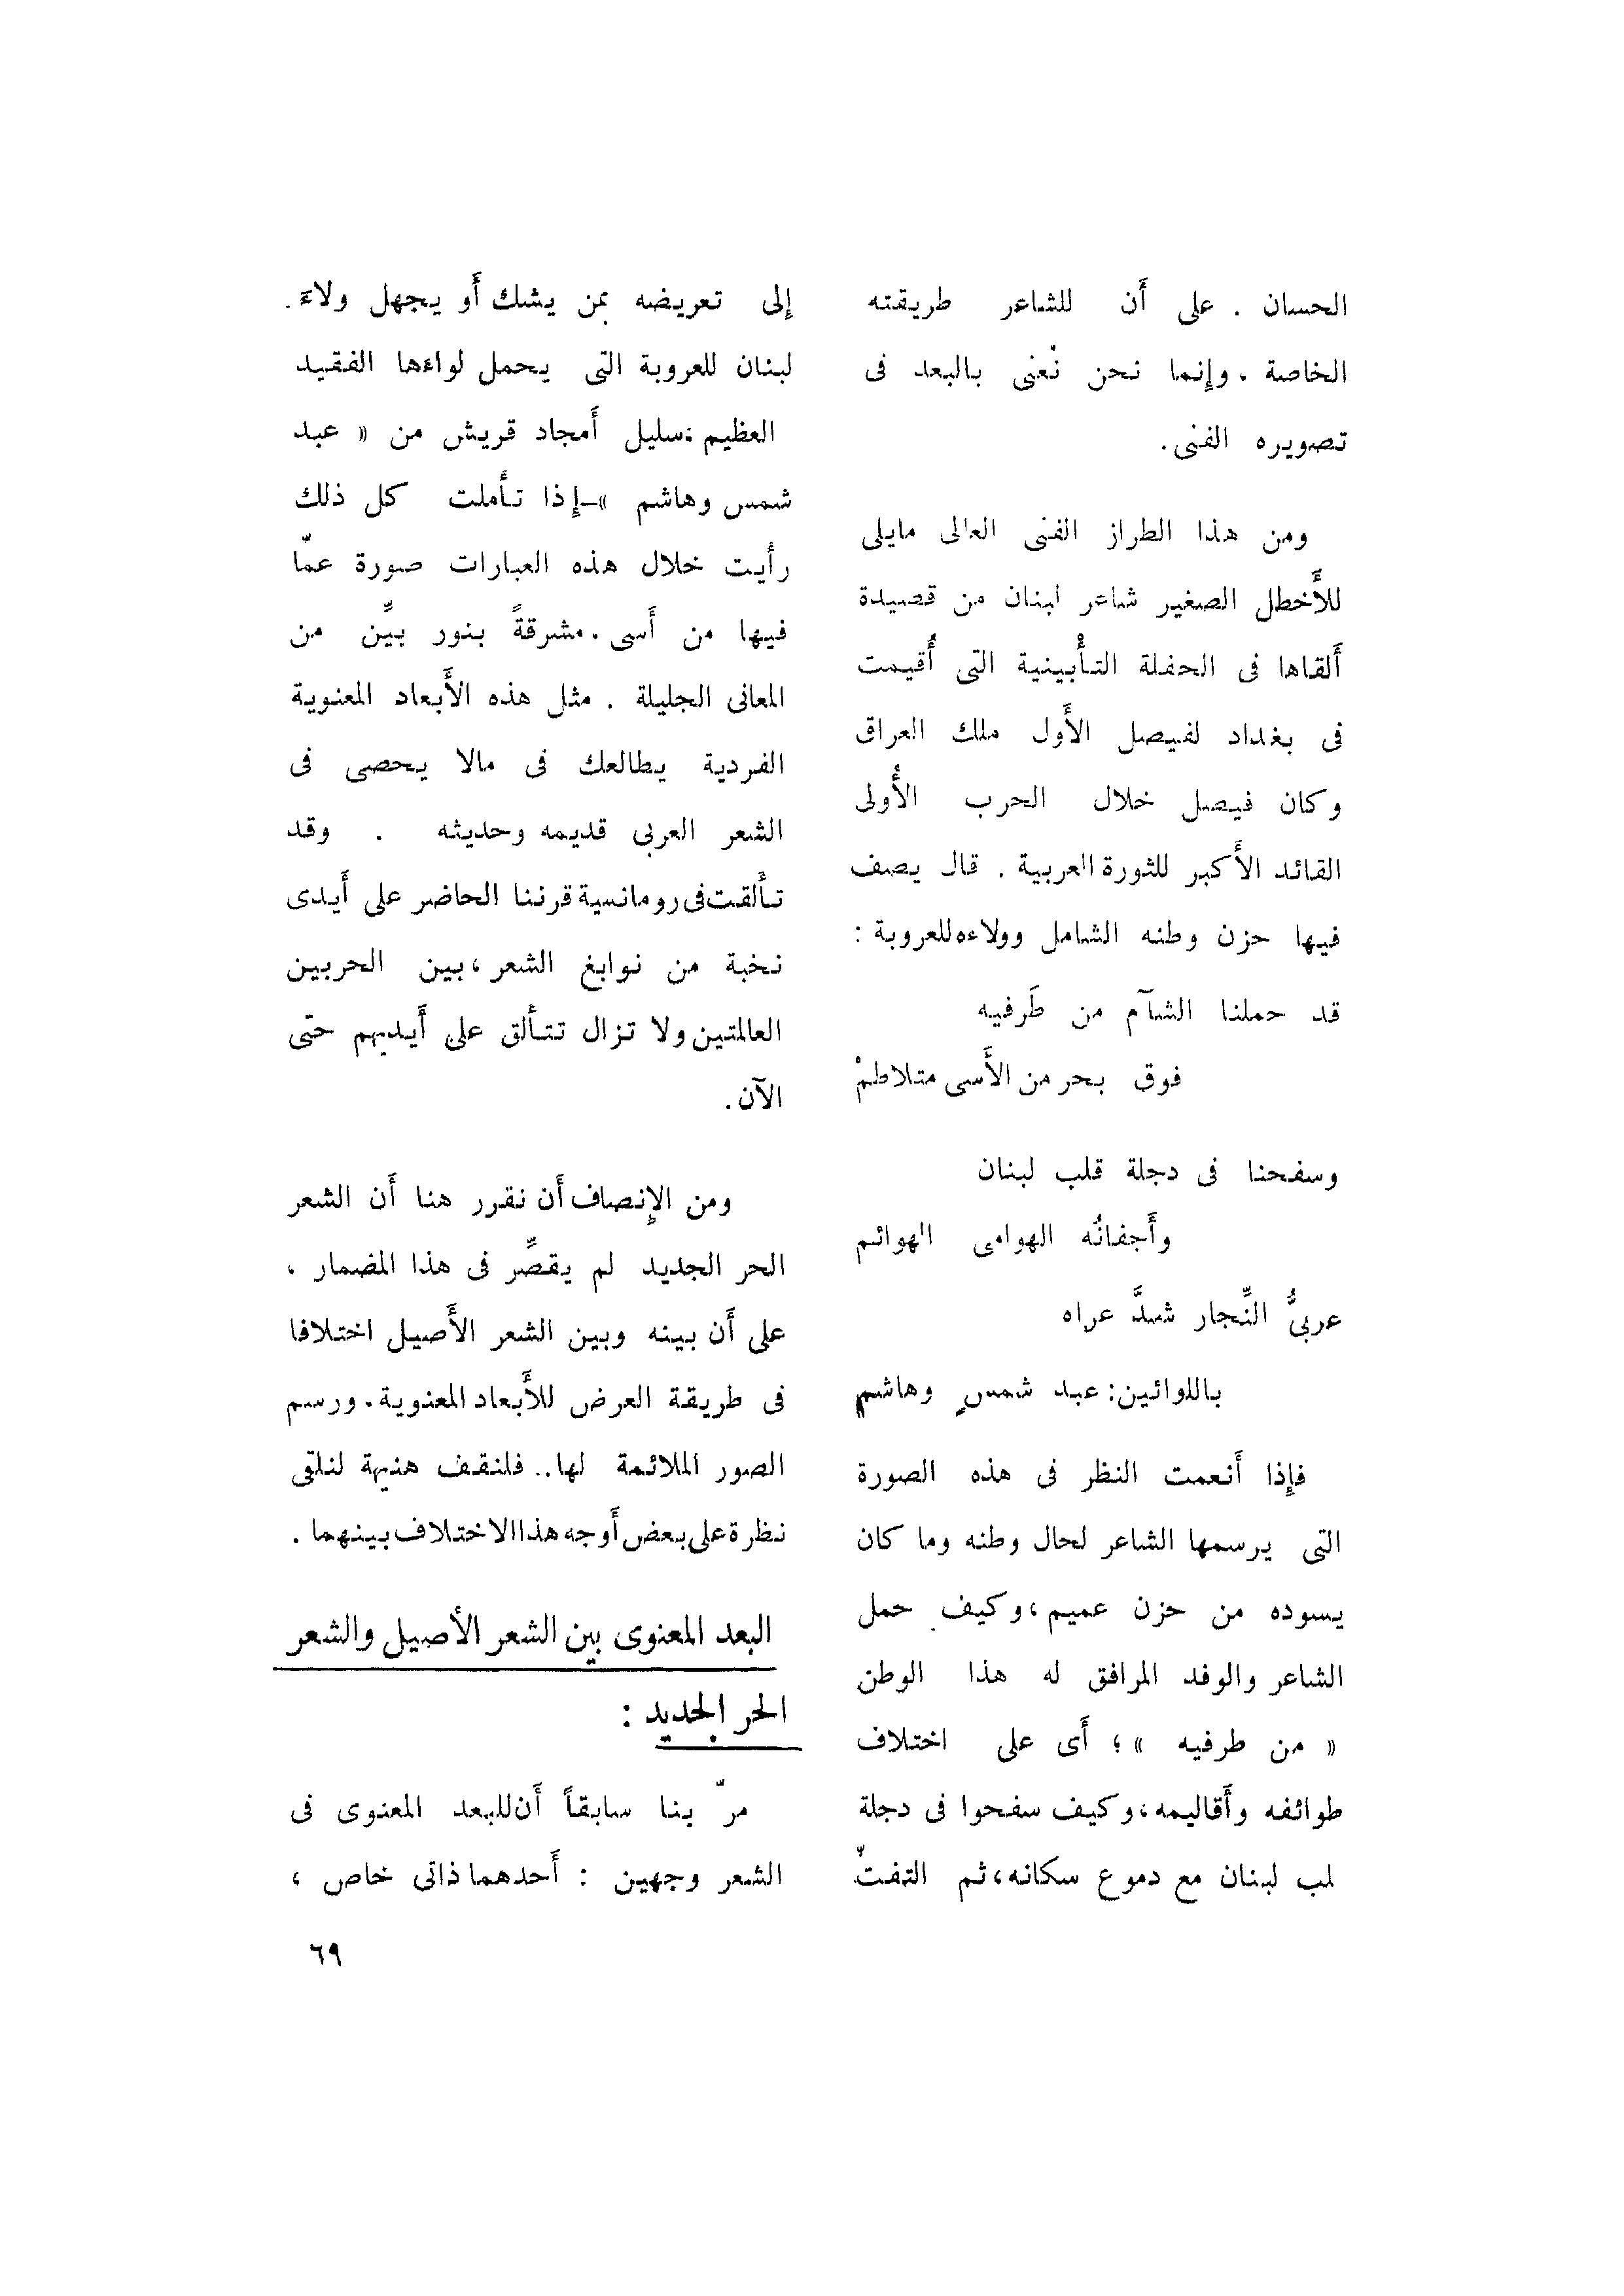 الحسان . على أَن للشاعر طريقته
الخاصة ، وإنما نحن نُعنى بالبعد فى
تصويره الفنى .
ومن هذا الطراز الفنى العالى مايلى
للأَخطل الصغير شاعر لبنان من قصيدة
أَلقاها فى الحفلة التأْبينية التى أُقيمت
فى بغداد لفيصل الأَول ملك العراق
وكان فيصل خلال الحرب الأُولى
القائد الأَكبر للثورة العربية . قال يصف
فيها حزن وطنه الشامل وولاءه للعروبة :
قد حملنا الشآم من طَرفيه
فوق بحر من الأَسى متلاطمْ
وسفحنا فى دجلة قلب لبنان
وأَجفانُه الهوامى الهوائم
عربىُّ النِّجار شدَّ عراه
باللوائين: عبد شمسٍ وهاشم
فإِذا أَنعمت النظر فى هذه الصورة
التى يرسمها الشاعر لحال وطنه وما كان
يسوده من حزن عميم ، وكيف حمل
الشاعر والوفد المرافق له هذا الوطن
« من طرفيه » ؛ أَى على اختلاف
طوائفه وأَقاليمه ، وكيف سفحوا فى دجلة
لب لبنان مع دموع سكانه ، ثم التفتّ
إِلى تعريضه بمن يشك أَو يجهل ولاءَ .
لبنان للعروبة التى يحمل لواءها الفقيد
العظيم : سليل أَمجاد قريش من « عبد
شمس وهاشم » – إِذا تأَملت كل ذلك
رأَيت خلال هذه العبارات صورة عمّا
فيها من أَسى . مشرقةً بنور بيِّن من
المعانى الجليلة . مثل هذه الأَبعاد المعنوية
الفردية يطالعك فى مالا يحصى فى
الشعر العربى قديمه وحديثه . وقد
تأَلقت فى رومانسية قرننا الحاضر على أَيدى
نخبة من نوابغ الشعر ، بين الحربين
العالمتين ولا تزال تتأَلق على أَيديهم حتى
الآن .
ومن الإِنصاف أَن نقرر هنا أَن الشعر
الحر الجديد لم يقصِّر فى هذا المضمار ،
على أَن بينه وبين الشعر الأَصيل اختلافا
فى طريقة العرض للأَبعاد المعنوية . ورسم
الصور الملائمة لها .. فلنقف هنيهة لنلقى
نظرة على بعض أَوجه هذا الاختلاف بينهما .
البعد المعنوى بين الشعر الأصيل والشعر
الحر الجديد :
مرّ بنا سابقاً أَن للبعد المعنوى فى
الشعر وجهين : أَحدهما ذاتى خاص ،
٦٩